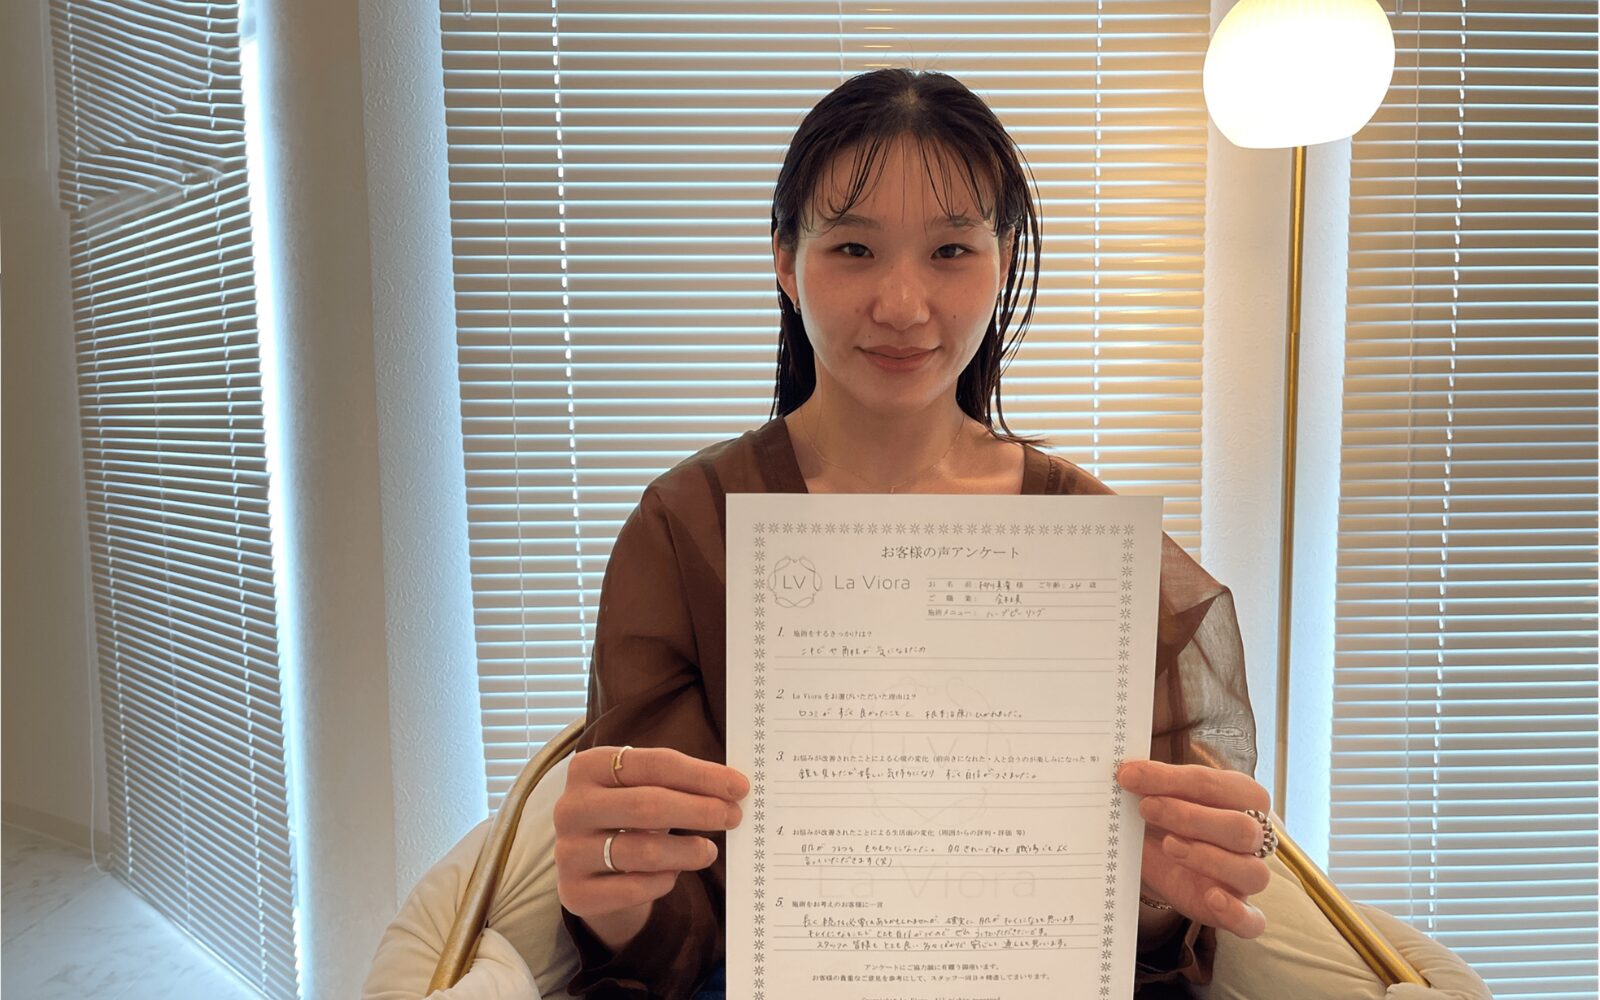 お客様の声アンケート
LV La Viora
お名前: 様 ご年齢: 24 歳
ご職業: 会社員
施術メニュー: ハーブピーリング
1. 施術をするきっかけは?
ニキビや 気になるため
2. La Vioraをお選びいただいた理由は?
口コミが すごく良かったことと 根本治療にひかれました。
3. お悩みが改善されたことによる心境の変化(前向きになれた・人と会うのが楽しみになった 等)
鏡を見るたび嬉しい気持ちになり すごく自信がつきました。
4. お悩みが改善されたことによる生活面の変化(周囲からの評判・評価 等)
肌が つるつる もちもちになった。 肌きれいだねと 職場でもよく
言っていただきます(笑)
5. 施術をお考えのお客様に一言
長く続ける必要もあるかもしれませんが、確実に肌が 良くなると思います
キレイになることで とても自信がつくので ぜひ うけていただきたいです。
スタッフの皆様も とても良い 方々ばかりで 安心して 通えると思います。
アンケートにご協力誠に有難う御座います。
お客様の貴重なご意見を参考にして、スタッフ一同日々精進してまいります。
La Viora